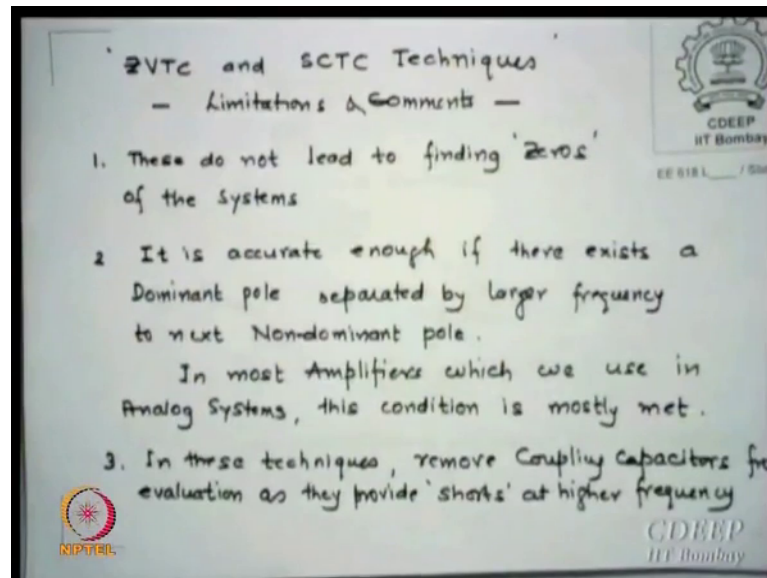 'ZVTC and SCTC Techniques'
- Limitations & Comments -
1. These do not lead to finding 'Zeros'
of the Systems
2 It is accurate enough if there exists a
Dominant pole separated by larger frequency
to next Non-dominant pole.
In most Amplifiers which we use in
Analog Systems, this condition is mostly met.
3. In these techniques, remove Coupling Capacitors
evaluation as they provide 'shorts' at higher frequency
CDEEP
IIT Bombay
EE 618 L /
NPTEL
CDEEP
IIT Bombay